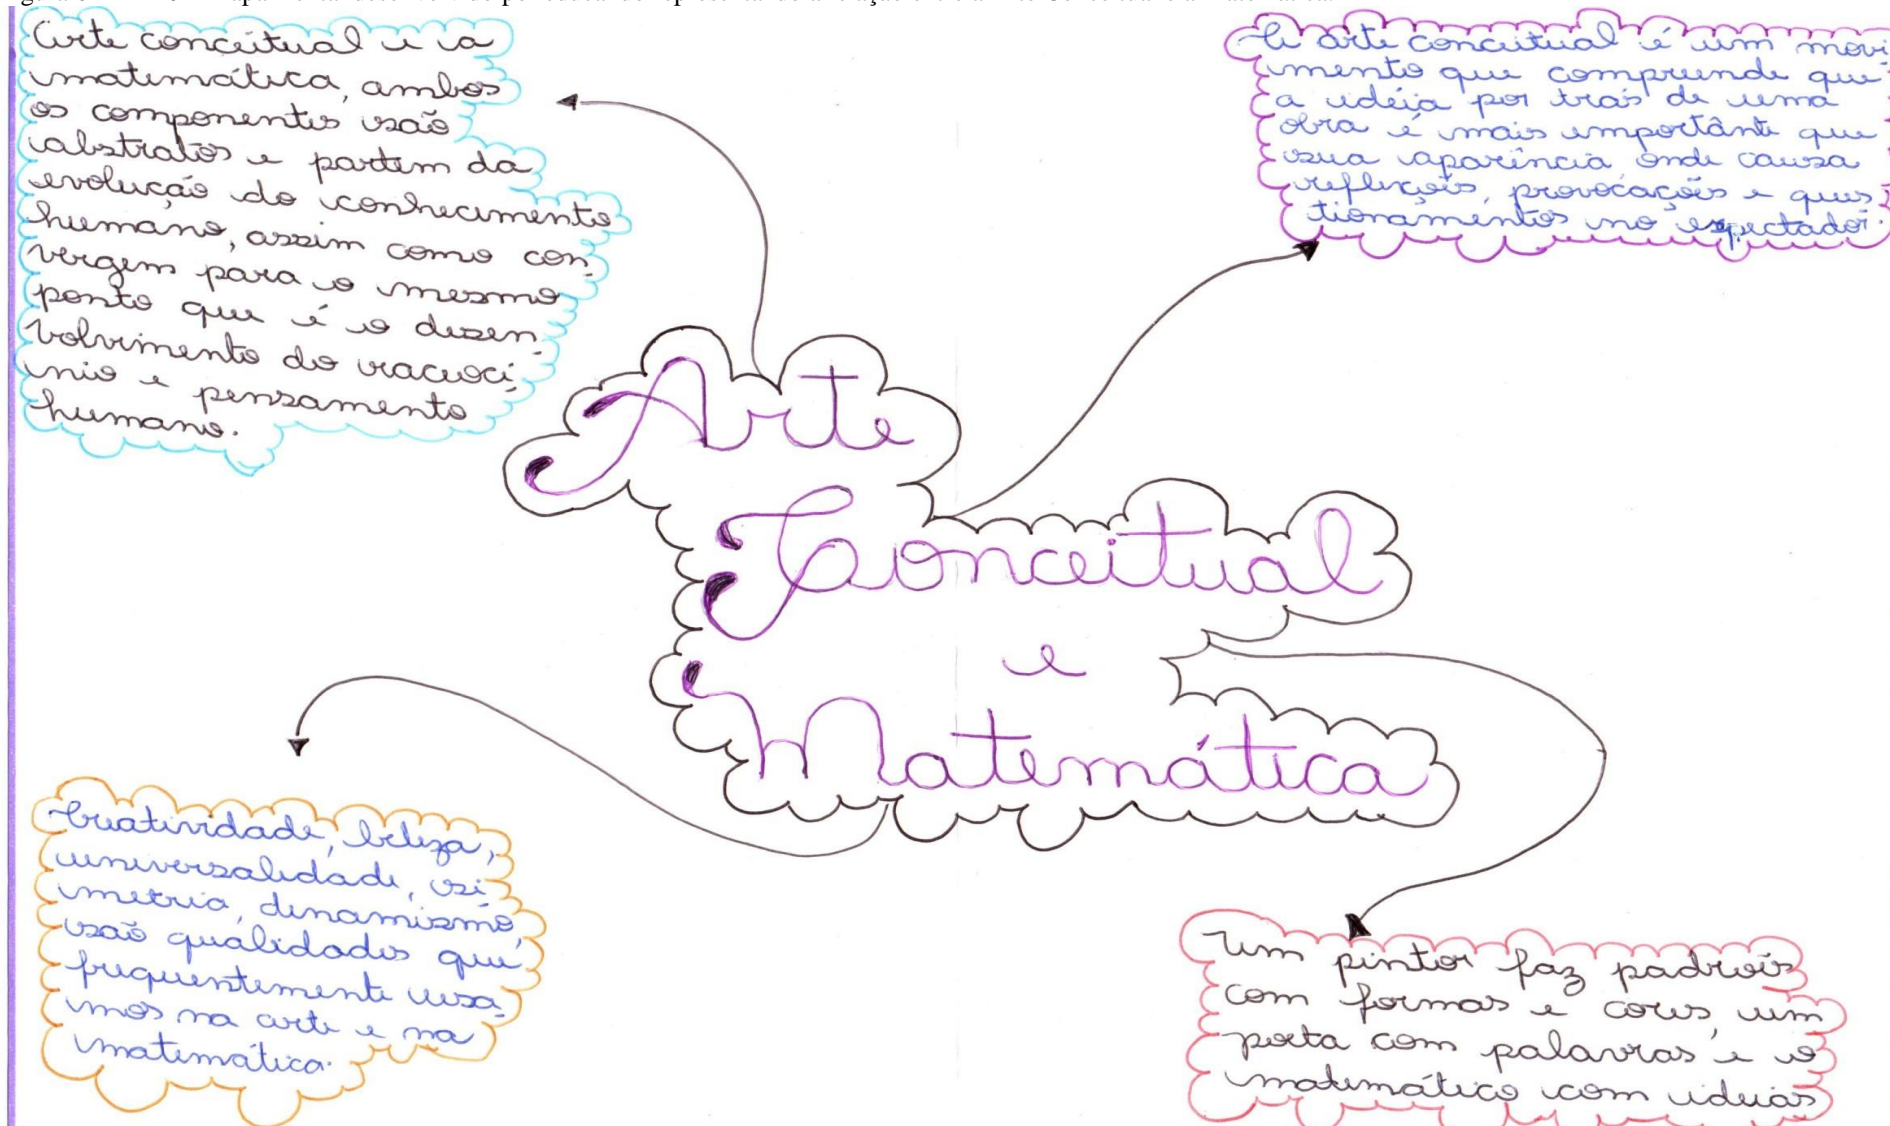 Arte conceitual e a
matemática, ambos
os componentes são
abstratos e partem da
evolução do conhecimento
humano, assim como con-
vergem para o mesmo
ponto que é o desen-
volvimento do racioci-
nio e pensamento
humano.
A arte conceitual é um movi-
mento que compreende que
a idéia por trás de uma
obra é mais importânte que
sua aparência onde causa
reflexões, provocações e ques
tionamentos no espectador.
Arte
Conceitual
e
Matemática
Criatividade, beleza,
universalidade, si-
metria, dinamismo,
são qualidades que
frequentemente usa-
mos na arte e na
matemática.
Um pintor faz padrões
com formas e cores, um
poeta com palavras e o
matemático com ideias